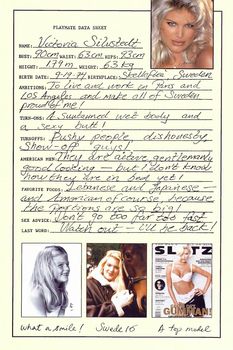 PLAYMATE DATA SHEET
NAME: Victoria Silvstedt
BUST: 90cm WAIST: 63cm HIPS: 93cm
HEIGHT: 1.79m WEIGHT: 63 kg
BIRTH DATE: 9-19-74 BIRTHPLACE: Skelleftea, Sweden
AMBITIONS: To live and work in Paris and
Los Angeles and make all of Sweden
proud of me!
TURN-ONS: A suntanned wet body and
a sexy butt!
TURNOFFS: Pushy people, dishonesty
Show-off guys!
AMERICAN MEN: They are active, gentlemanly
good looking — but I don't know
how they are in bed yet!
FAVORITE FOODS: Lebanese and Japanese —
and American of course because
the portions are so big!
SEX ADVICE: Don't go too far too fast
LAST WORD: Watch out — I'll be back!
SLITZ
What a smile! Swede 16 A top model